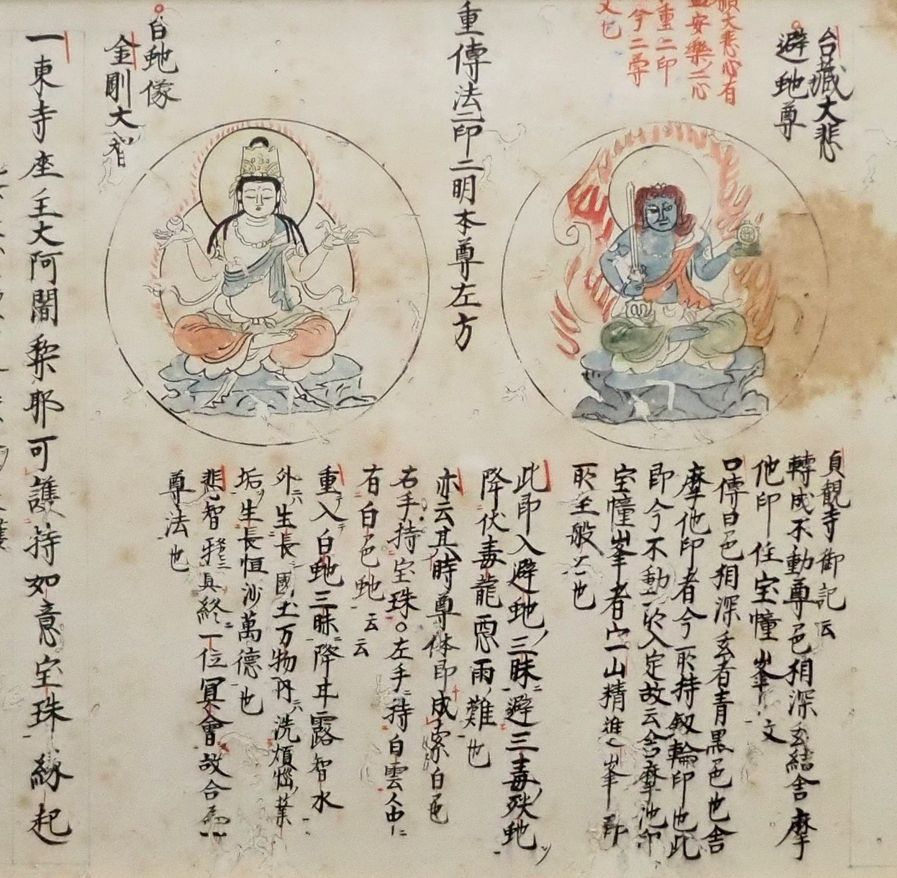 台蔵大悲
避虵尊
願大悲心有
益安樂之心
重二印
今二尊
文也
重傳法二印二明本尊左方
白虵像
金剛大智
貞観寺御記云
轉成不動尊色相深玄結舎摩
他印住宝幢峯文
口傳曰色相深玄者青黒色也舎
摩他印者今所持釼輪印也此
即今不動入定故云舎摩他印
宝幢峯者宀一山精進峯即
此即入避虵三昧避三毒殃虵
降伏毒龍悪雨難也
亦云其時尊体即成索白色
右手持宝珠左手持白雲人中
有白色虵云云
重入白虵三昧降甘露智水
外生長國土万物内洗煩惱業
垢生長恒沙萬德也
悲智終一位冥會故合
尊法也
一東寺座主大阿闍梨耶可護持如意宝珠縁起